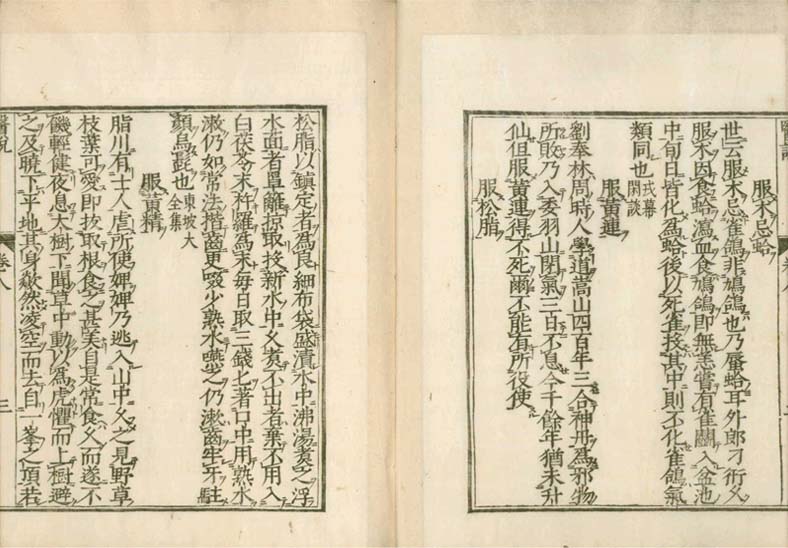 服木忌蛤
世云服木忌雀鴿非鳩鴿也乃蜃蛤耳外郎刁術久
服木因食蛤瀉血食鳩鴿即無恙嘗有雀鬭入盆池
中旬日皆化爲蛤後以死雀投其中則不化雀鴿氣
類同也 戎幕閑談
服黃連
劉奉林周時人學道嵩山四百年三合神丹爲邪物
所敗乃入委羽山閉氣三日不息今千餘年猶未升
仙但服黃連得不死爾不能有所役使
服松脂
松脂以鎮定者爲良細布袋盛漬水中沸湯煑之浮
水面者罩籬掠取投新水中久煑不出者棄不用入
白茯苓末杵羅爲末每日取三錢匕著口中用熟水
漱仍如常法揩齒更啜少熟水嚥之仍漱齒牢牙駐
顔烏髭也 東坡大全集
服黃精
脂川有士人虐所使婢婢乃逃入山中久之見野草
枝葉可愛即拔取根食之甚美自是常食久而遂不
饑輕健夜息大樹下聞草中動以爲虎懼而上樹避
之及曉下平地其身歘然凌空而去自一峯之頂若
醫説 卷八 三